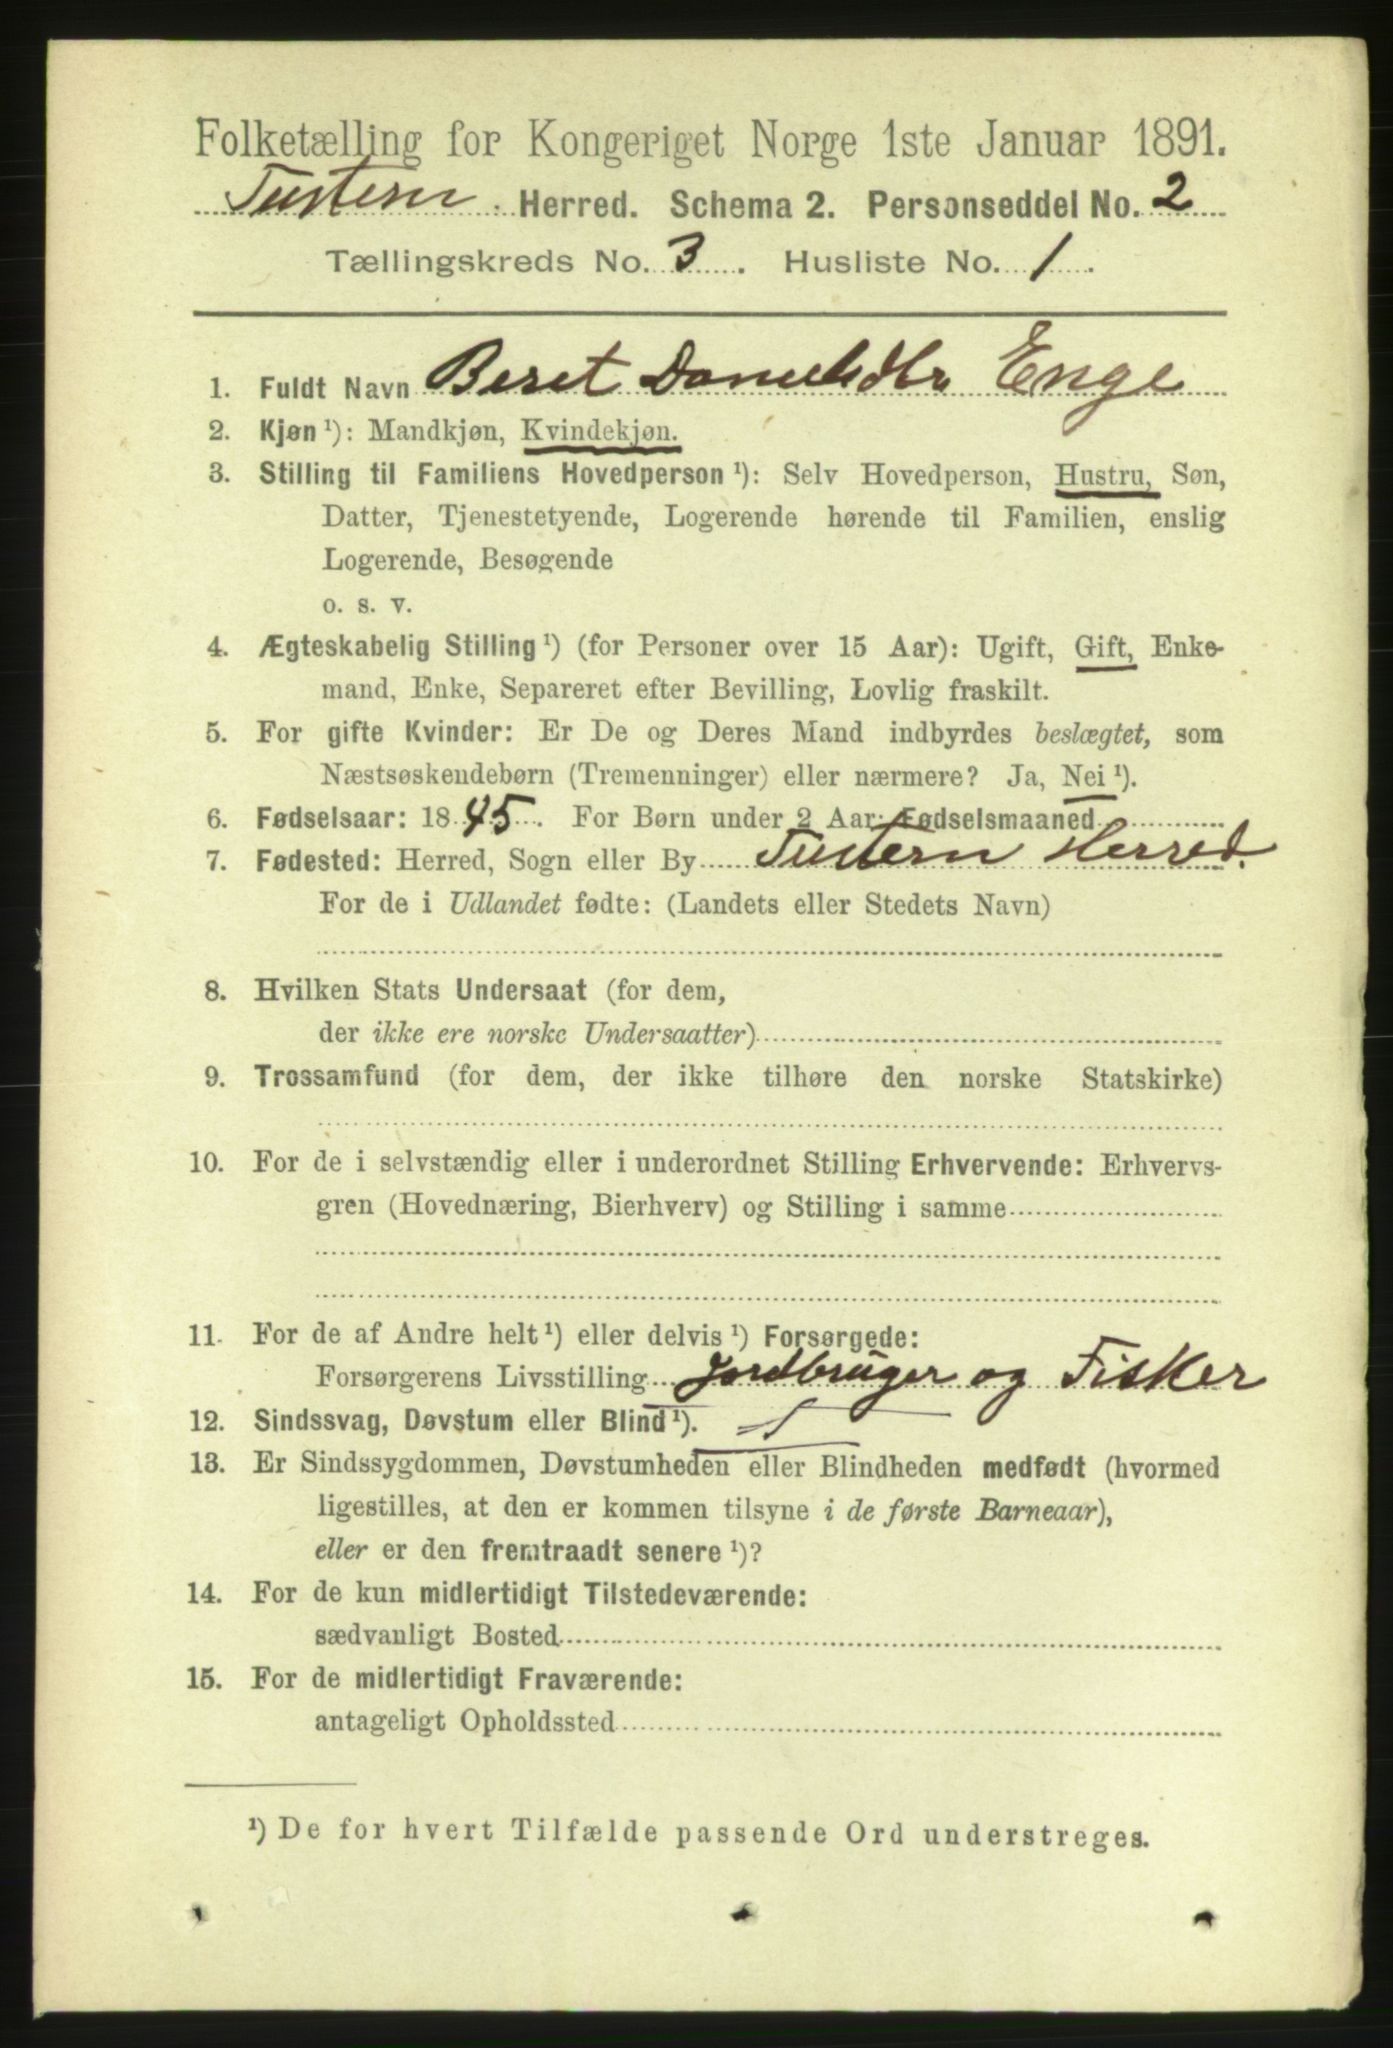 Folketælling for Kongeriget Norge 1ste Januar 1891.
Tustern Herred. Schema 2. Personseddel No. 2
Tællingskreds No. 3. Husliste No. 1.
1. Fuldt Navn Beret Danielsdtr Enge
2. Kjøn ¹): Mandkjøn, Kvindekjøn.
3. Stilling til Familiens Hovedperson ¹): Selv Hovedperson, Hustru, Søn,
Datter, Tjenestetyende, Logerende hørende til Familien, enslig
Logerende, Besøgende
o. s. v.
4. Ægteskabelig Stilling ¹) (for Personer over 15 Aar): Ugift, Gift, Enke-
mand, Enke, Separeret efter Bevilling, Lovlig fraskilt.
5. For gifte Kvinder: Er De og Deres Mand indbyrdes beslægtet, som
Næstsøskendebørn (Tremenninger) eller nærmere? Ja, Nei ¹).
6. Fødselsaar: 1845. For Børn under 2 Aar: Fødselsmaaned
7. Fødested: Herred, Sogn eller By Tustern Herred.
For de i Udlandet fødte: (Landets eller Stedets Navn)
8. Hvilken Stats Undersaat (for dem,
der ikke ere norske Undersaatter)
9. Trossamfund (for dem, der ikke tilhøre den norske Statskirke)
10. For de i selvstændig eller i underordnet Stilling Erhvervende: Erhvervs-
gren (Hovednæring, Bierhverv) og Stilling i samme
11. For de af Andre helt ¹) eller delvis ¹) Forsørgede:
Forsørgerens Livsstilling Jordbruger og Fisker
12. Sindssvag, Døvstum eller Blind ¹).
13. Er Sindssygdommen, Døvstumheden eller Blindheden medfødt (hvormed
ligestilles, at den er kommen tilsyne i de første Barneaar),
eller er den fremtraadt senere ¹)?
14. For de kun midlertidigt Tilstedeværende:
sædvanligt Bosted
15. For de midlertidigt Fraværende:
antageligt Opholdssted
¹) De for hvert Tilfælde passende Ord understreges.